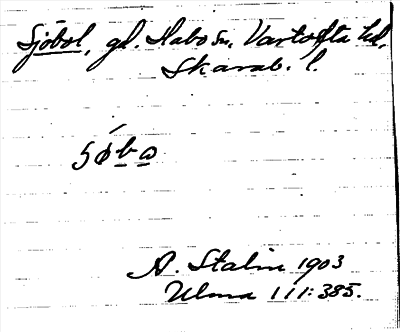 Sjöbol, gl. Habo sn, Vartofta hd,
Skarab. l.
A. Stalin 1903
Ulma 111:385.